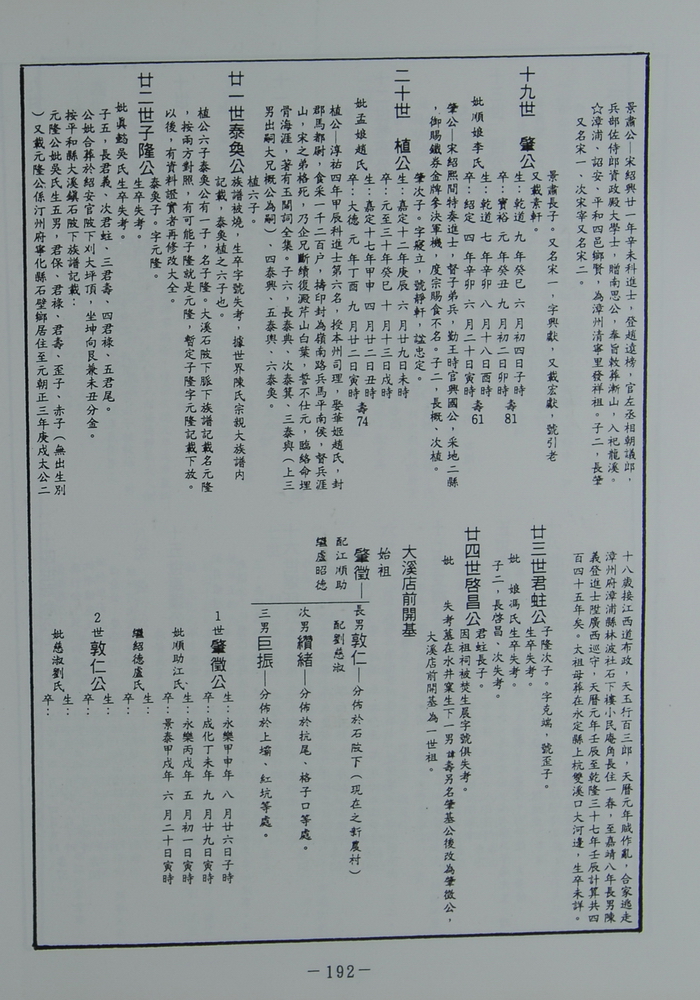 景肅公—宋紹興廿一年辛未科進士，登趙逵榜，官左丞相朝議郎，
兵部佐侍郎資政殿大學士，贈南思公，奉旨敕葬漸山，入祀龍溪。
☆漳浦、詔安、平和四邑鄉賢，為漳州清寧里發祥祖。子二，長肇
又名宋一、次宋宰又名宋二。
十九世　肇公
景肅長子。又名宋一，字興獻，又載宏獻，號引老
又載素軒。
生：乾道　九　年癸巳　六　月初四日子時
卒：寶裕　元　年癸丑　九　月初二日卯時　壽81
妣順娘李氏
生：乾道　七　年辛卯　八　月十八日酉時
卒：紹定　四　年辛卯　六　月二十日寅時　壽61
肇公—宋紹熙間特奏進士，督子弟兵，勤王時官興國公，采地二縣
，御賜鐵券金牌參決軍機，度宗賜食不名。子二，長概、次植。
二十世　植公
肇次子。字寢立，號靜軒，諡忠定。
生：嘉定十二年庚辰　六　月廿九日未時
卒：元至三十年癸巳　十　月十三日戌時
妣孟娘趙氏
生：嘉定十七年甲申　四　月廿二日丑時
卒：大德　元　年丁酉　九　月廿二日寅時　壽74
植公—淳祐四年甲辰科進士第六名，授本州司理，娶華姬趙氏，封
郡馬都尉，食采一千二百户，擣印封為嶺南路兵馬平南侯，督兵涯
山，宋之弟格死，乃企兄斷續復溉芹山白葉，誓不仕元，臨絡命埋
骨海涯，著有玉閒詞全集。子六，長泰興、次泰箕、三泰興（上三
男出嗣大兄概公為嗣）、四泰興、五泰輿、六泰奐。
廿一世泰奐公
植六子。
族譜被燒，生卒字號失考，據世界陳氏宗親大族譜內
記載，泰奐植之六子也。
植公六子泰奐公有一子，名子隆。大溪石陂下脈下族譜記載名元隆
，按兩方對照，有可能子隆就是元隆，暫定子隆字元隆記載下放。
以後，有資料證實者再修改大全。
廿二世子隆公
泰奐子。字元隆。
生卒失考。
妣真懿吳氏　生卒失考。
子五，長君義、次君蛀、三君壽、四君祿、五君尾。
公妣合葬於紹安官陂下刈大坪頂，坐坤向艮兼未丑分金。
按平和縣大溪鎮石陂下族譜記載：
元隆公妣吳氏生五男，君保、君祿、君壽、歪子、赤子（無出生別
）又載元隆公係汀州府寧化縣石壁鄉居住至元朝正三年庚戌太公二
十八歲接江西道布政，天玉行百三郎，天曆元年賊作亂，合家逃走
漳州府漳浦縣林波社石下樓小民庵角長住一春，至嘉靖八年長男陳
義登進士陞廣西巡守，天曆元年壬辰至乾隆三十七年壬辰計算共四
百四十五年矣。大祖母葬在永定縣上杭雙溪口大河邊，生卒未詳。
廿三世君蛀公
子隆次子。字克端，號歪子。
生卒失考。
妣　娘馮氏　生卒失考。
子二，長啓昌、次失考。
廿四世啓昌公
君蛀長子。
因祖祠被焚生辰字號俱失考。
妣　失考墓在水井窠生下一男諱壽另名肇基公後改為肇微公，
大溪店前開基為一世祖。
大溪店前開基
始祖
肇徵—
配江順助
繼盧昭德
長男敦仁—分佈於石陂下（現在之新農村）
配劉慈淑
次男纘緒—分佈於抗尾、格子口等處。
三男巨振—分佈於上壩、紅坑等處。
1世肇徵公
生：永樂甲申年　八　月廿六日子時
卒：成化丁未年　九　月廿九日寅時
妣順助江氏
生：永樂丙戌年　五　月初一日寅時
卒：景泰甲戌年　六　月二十日寅時
繼紹德盧氏
生：
卒：
2世敦仁公
生：
卒：
妣慈淑劉氏
生：
卒：
－192－